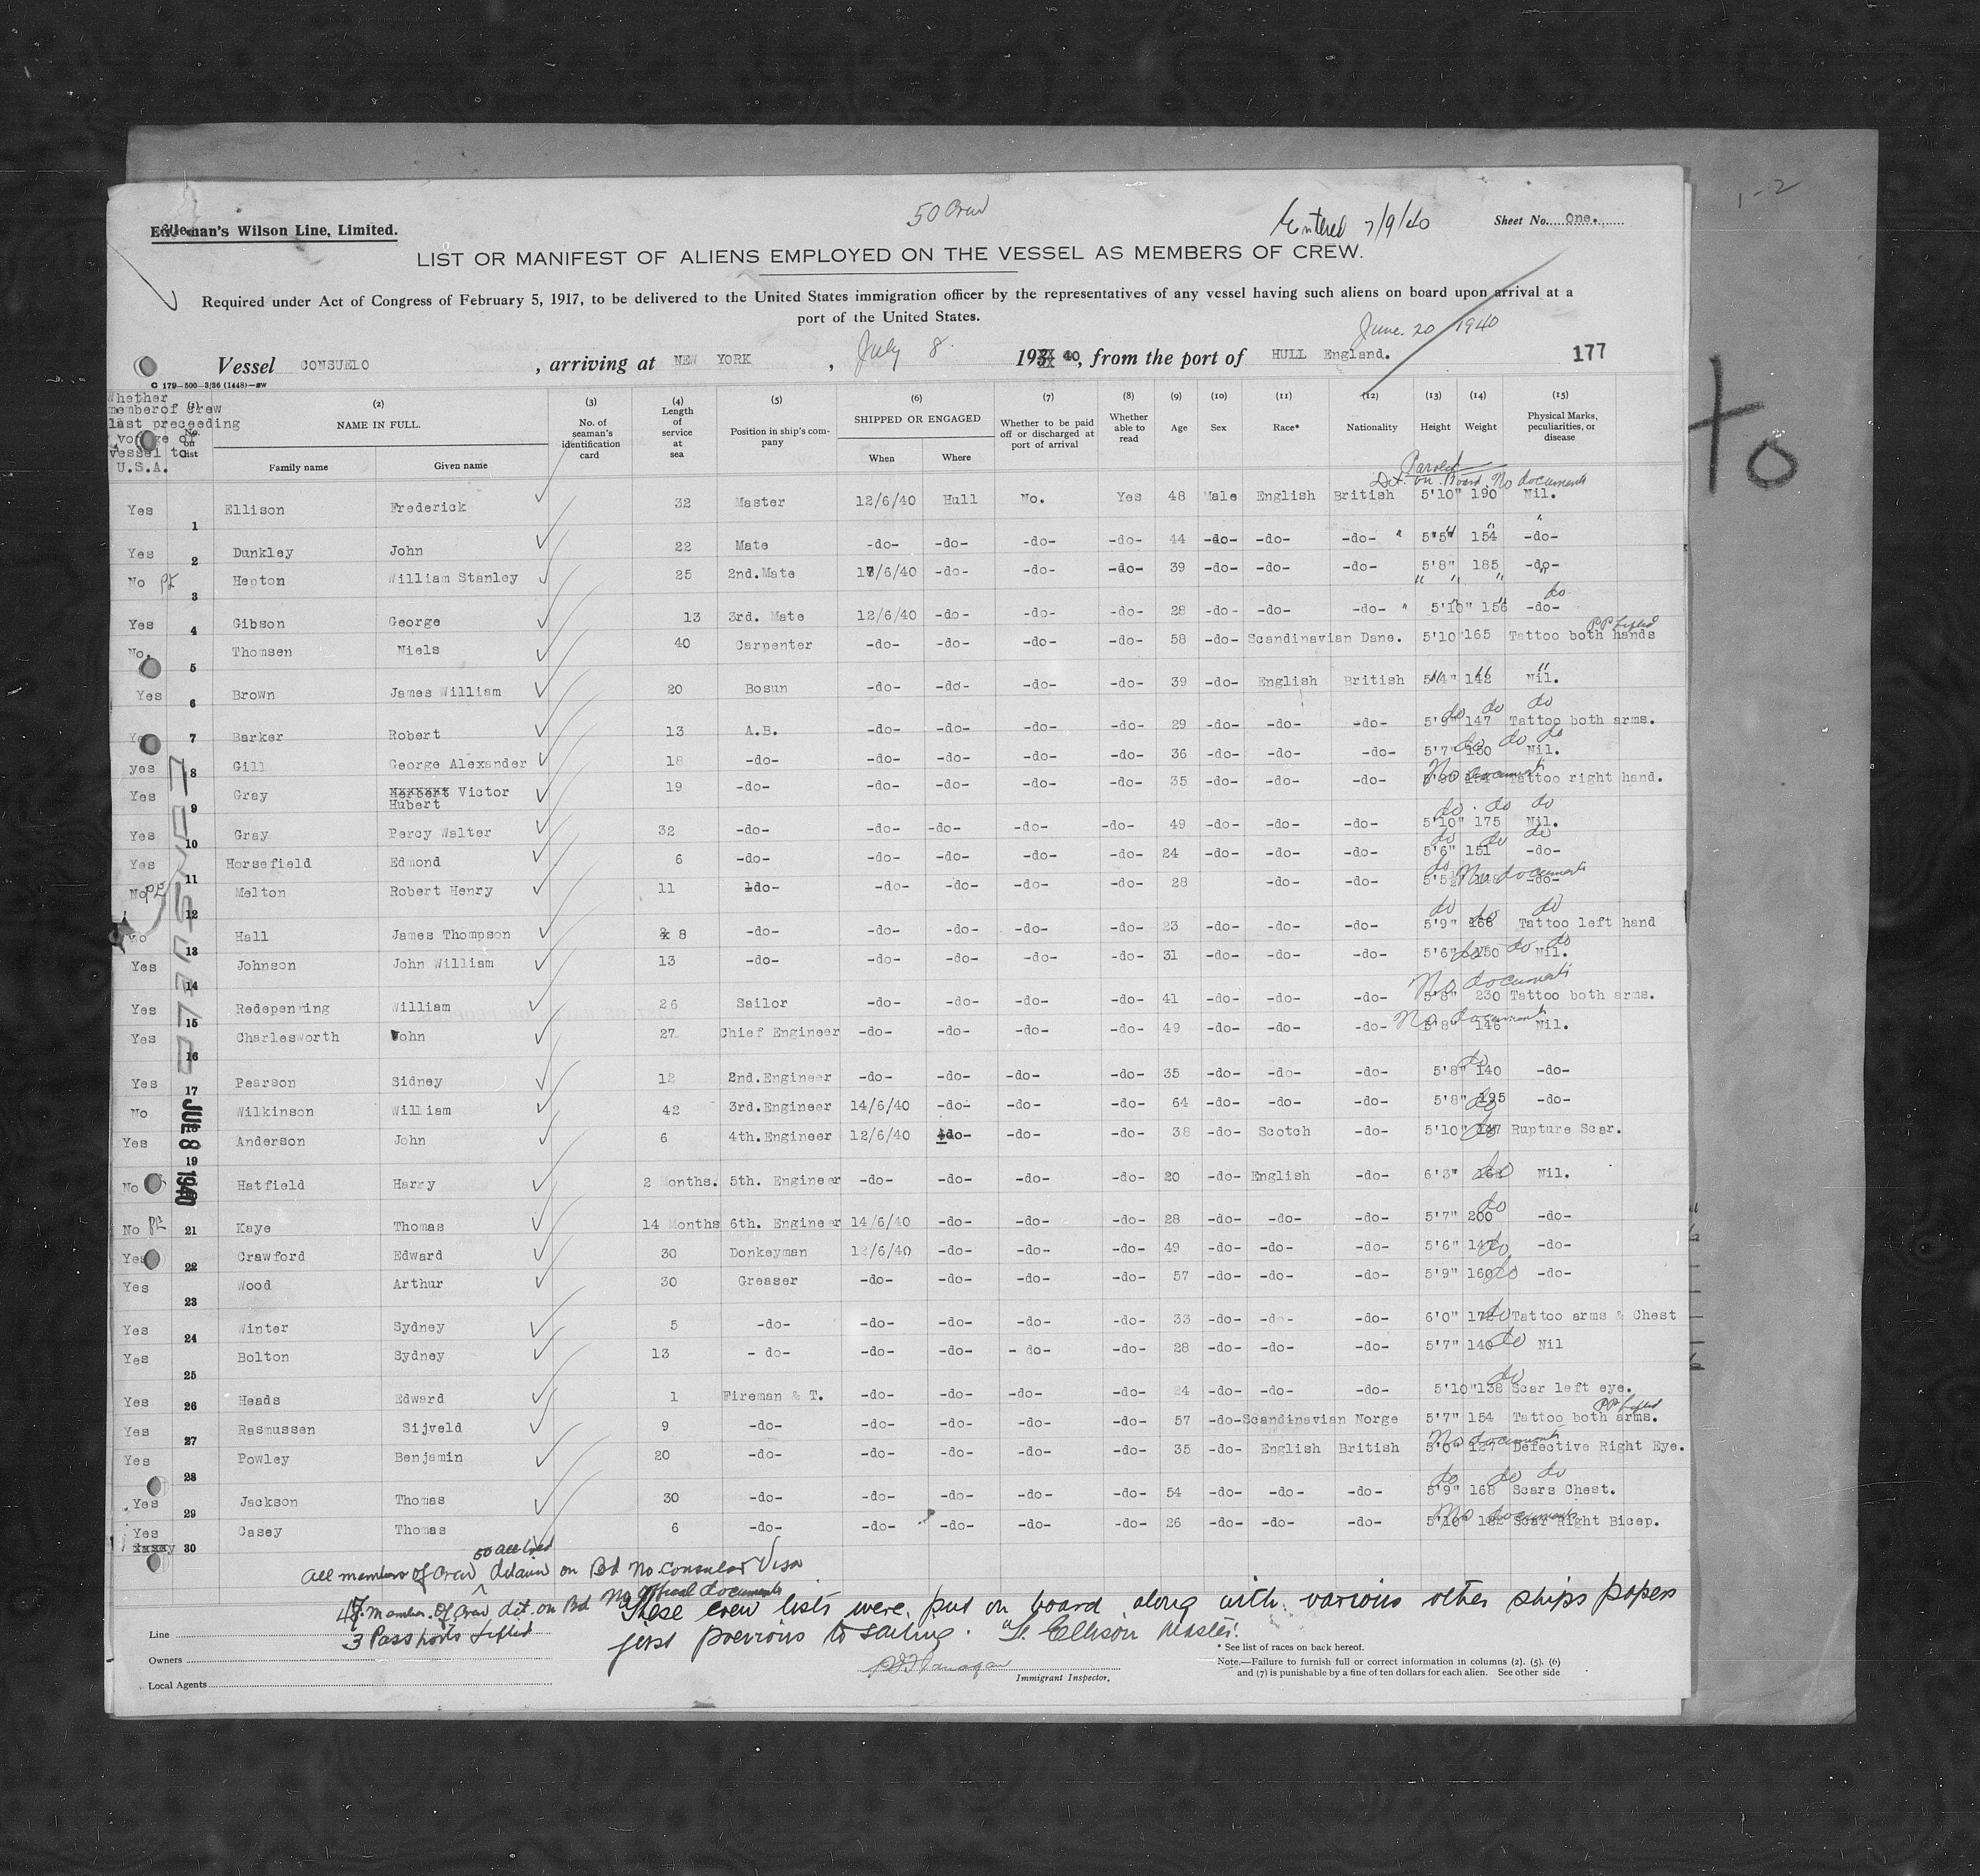 50 Crew
Entered 7/9/40
Sheet No. One.
Ellerman's Wilson Line, Limited.
LIST OR MANIFEST OF ALIENS EMPLOYED ON THE VESSEL AS MEMBERS OF CREW.
Required under Act of Congress of February 5, 1917, to be delivered to the United States immigration officer by the representatives of any vessel having such aliens on board upon arrival at a
port of the United States.
June. 20 / 1940
Vessel CONSUELO, arriving at NEW YORK, July 8. 193 40, from the port of HULL England. 177
C 179-500-3/36 (1448)
Whether member of crew last preceeding voyage of vessel to U.S.A.
(1) No. on list (2) NAME IN FULL. Family name Given name (3) No. of seaman's identification card (4) Length of service at sea (5) Position in ship's company (6) SHIPPED OR ENGAGED When Where (7) Whether to be paid off or discharged at port of arrival (8) Whether able to read (9) Age (10) Sex (11) Race* (12) Nationality (13) Height (14) Weight (15) Physical Marks, peculiarities, or disease
Paroled
Det. on Board No documents
Yes 1 Ellison Frederick 32 Master 12/6/40 Hull No. Yes 48 Male English British 5'10" 190 Nil.
Yes 2 Dunkley John 22 Mate -do- -do- -do- -do- 44 -do- -do- -do- " 5'5" 154 -do-
No PE 3 Hepton William Stanley 25 2nd.Mate 17/6/40 -do- -do- -do- 39 -do- -do- -do- 5'8" 185 -do-
Yes 4 Gibson George 13 3rd. Mate 12/6/40 -do- -do- -do- 28 -do- -do- -do- " 5'10" 156 -do-
PP Lifted
No. 5 Thomsen Niels 40 Carpenter -do- -do- -do- -do- 58 -do- Scandinavian Dane. 5'10" 165 Tattoo both hands
Yes 6 Brown James William 20 Bosun -do- -do- -do- -do- 39 -do- English British 5'4" 142 Nil.
do do do
7 Barker Robert 13 A.B. -do- -do- -do- -do- 29 -do- -do- -do- 5'9" 147 Tattoo both arms.
do do do
yes 8 Gill George Alexander 18 -do- -do- -do- -do- -do- 36 -do- -do- -do- 5'7" Nil.
No documents
Yes 9 Gray Victor Hubert 19 -do- -do- -do- -do- -do- 35 -do- -do- -do- Tattoo right hand.
do. do do
Yes 10 Gray Percy Walter 32 -do- -do- -do- -do- -do- 49 -do- -do- -do- 5'10" 175 Nil.
do do do
Yes 11 Horsefield Edmond 6 -do- -do- -do- -do- -do- 24 -do- -do- -do- 5'6" 151 -do-
do No documents
No PE 12 Melton Robert Henry 11 -do- -do- -do- -do- -do- 28 -do- -do- -do-
do do do
No 13 Hall James Thompson 8 -do- -do- -do- -do- -do- 23 -do- -do- -do- 5'9" 166 Tattoo left hand
do do do
Yes 14 Johnson John William 13 -do- -do- -do- -do- -do- 31 -do- -do- -do- 5'6" 150 Nil.
No documents
Yes 15 Redepenning William 26 Sailor -do- -do- -do- -do- 41 -do- -do- -do- 5'8" 230 Tattoo both arms.
No documents
Yes 16 Charlesworth John 27 Chief Engineer -do- -do- -do- -do- 49 -do- -do- -do- 5'8" 146 Nil.
do
Yes 17 Pearson Sidney 12 2nd.Engineer -do- -do- -do- -do- 35 -do- -do- -do- 5'8" 140 -do-
No 18 Wilkinson William 42 3rd.Engineer 14/6/40 -do- -do- -do- 64 -do- -do- -do- 5'8" 195 -do-
Yes 19 Anderson John 6 4th.Engineer 12/6/40 -do- -do- -do- 38 -do- Scotch -do- 5'10" Rupture Scar.
JUL 8 1940
No Hatfield Harry 2 Months. 5th. Engineer -do- -do- -do- -do- 20 -do- English -do- 6'3" Nil.
do
No PE 21 Kaye Thomas 14 Months 6th. Engineer 14/6/40 -do- -do- -do- 28 -do- -do- -do- 5'7" 200 -do-
Yes 22 Crawford Edward 30 Donkeyman 12/6/40 -do- -do- -do- 49 -do- -do- -do- 5'6" 147 do -do-
Yes 23 Wood Arthur 30 Greaser -do- -do- -do- -do- 57 -do- -do- -do- 5'9" 160 do -do-
Yes 24 Winter Sydney 5 -do- -do- -do- -do- -do- 33 -do- -do- -do- 6'0" do Tattoo arms & Chest
Yes 25 Bolton Sydney 13 - do- -do- -do- - do- -do- 28 -do- -do- -do- 5'7" 140 do Nil
do
Yes 26 Heads Edward 1 Fireman & T. -do- -do- -do- -do- 24 -do- -do- -do- 5'10" 138 Scar left eye.
PP Lifted
Yes 27 Rasmussen Sijveld 9 -do- -do- -do- -do- -do- 57 -do- Scandinavian Norge 5'7" 154 Tattoo both arms.
No documents
Yes 28 Powley Benjamin 20 -do- -do- -do- -do- -do- 35 -do- English British 5'0" 127 Defective Right Eye.
do do do
Yes 29 Jackson Thomas 30 -do- -do- -do- -do- -do- 54 -do- -do- -do- 5'9" 168 Scars Chest.
No documents
Yes 30 Casey Thomas 6 -do- -do- -do- -do- -do- 26 -do- -do- -do- 5'10" Scar Right Bicep.
50 all told
All members of Crew detain on Bd No Consular Visa
47 Member. of Crew det. on Bd No official documents
3 Passports Lifted
These crew lists were put on board along with various other ships papers
just previous to sailing. F. Ellison Master.
Line
Owners
Local Agents
Immigrant Inspector.
* See list of races on back hereof.
Note.—Failure to furnish full or correct information in columns (2), (5), (6)
and (7) is punishable by a fine of ten dollars for each alien. See other side
to
1-2